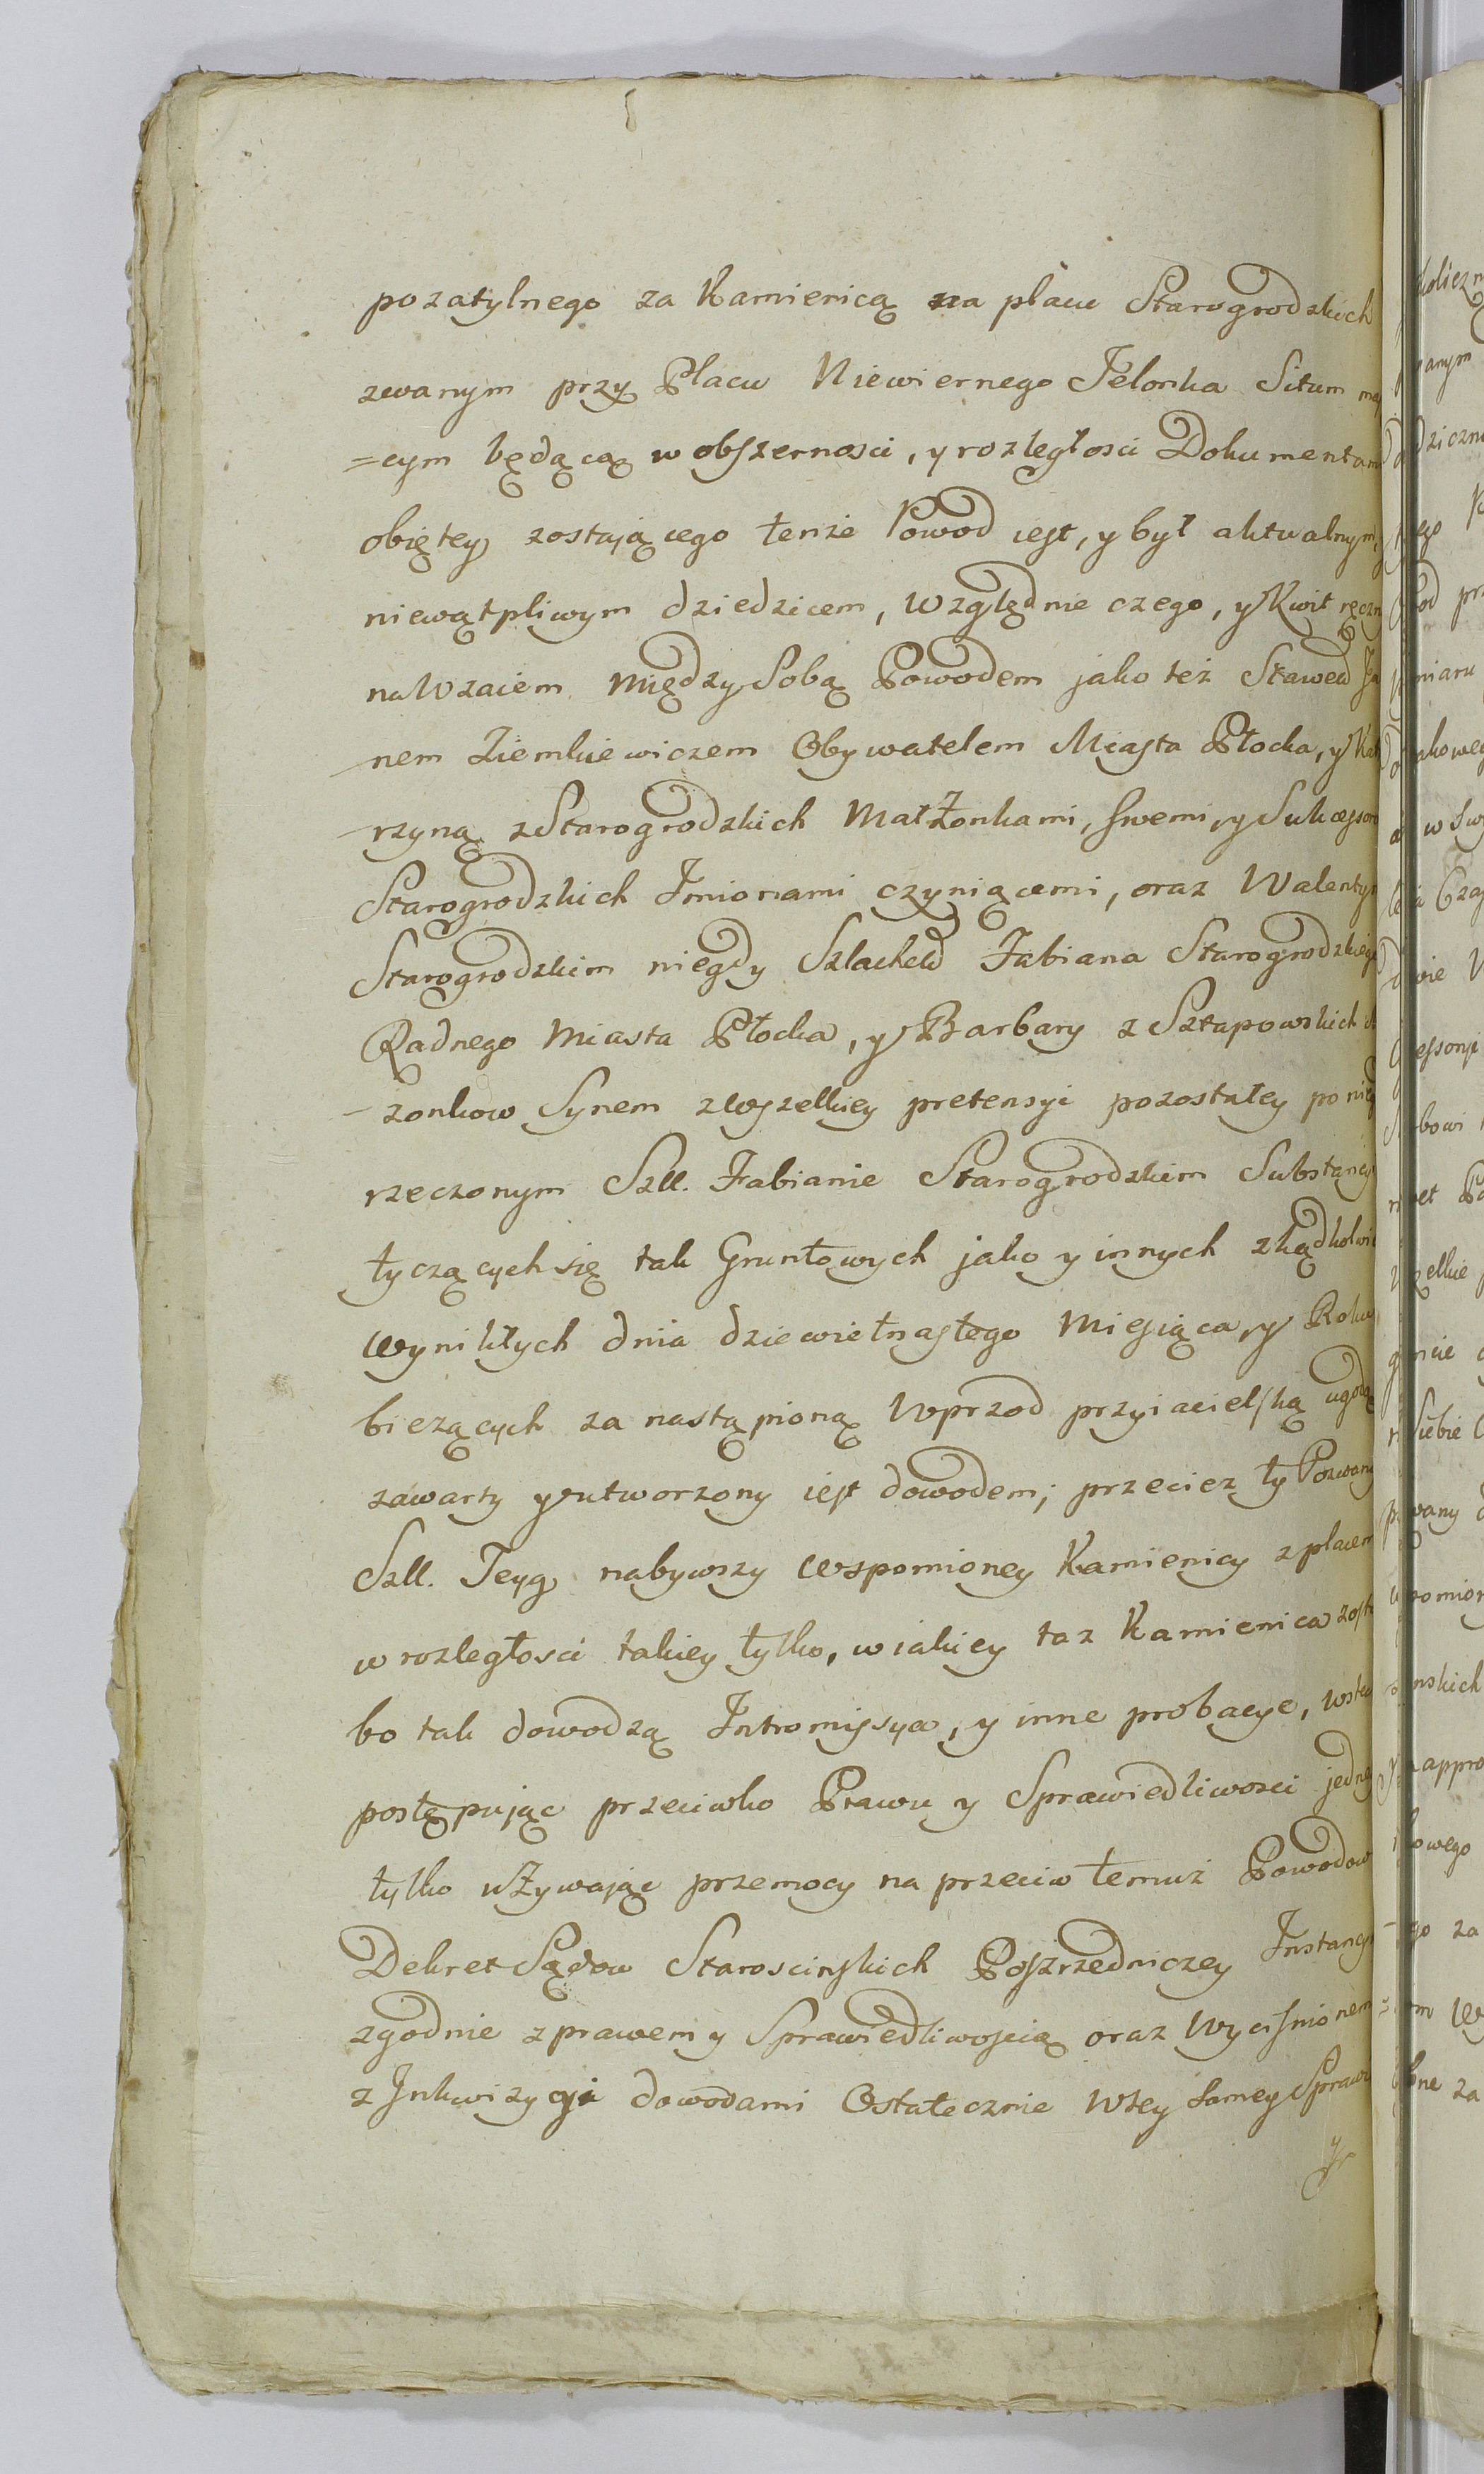 pozatylnego za Kamienicą na placu Starogrodzkich
zwanym przy Placu Niewiernego Jelonka Situm
=cym będącą w obszernosci, y rozległosci Dokumentam
obiętey zostającego tenże Powod iest, y był aktualnym,
niewątpliwym dziedzicem, względnie czego, y Kwit ręczn
nawzaiem między Sobą Powodem jako też Staweд Ja
nem Ziemkiewiczem Obywatelem Miasta Płocka, y Kat
rzyną z Starogrodzkich Małżonkami, swemi, y Sukcessor
Starogrodzkich Imionami czyniącemi, oraz Walentym
Starogrodzkim niegdy Szlachetd Fabiana Starogrodzkiego
Radnego Miasta Płocka, y Barbary z Sztapowskich
żonkow Synem z wszelkiey pretensyi pozostałey po nieg
rzeczonym Szll. Fabianie Starogrodzkim Substancy
tyczących się tak Gruntowych jako y innych zkądkolwie
wynikłych dnia dziewiętnastego Miesiąca, y Roku
bieżących za nastąpioną wprzod przyiacielską ugodą
zawarty y utworzony iest dowodem; przecież ty Pozwany
Szll. Teyg nabywszy wspomioney Kamienicy z placem
w rozległosci takiey tylko, w iakiey taż Kamienica zost
bo tak dowodzą Intromissya, y inne probacye,
postępując przeciwko Prawu y Sprawiedliwosci jedne
tylko używając przemocy na przeciw temuż Powodow
Dekret Sądow Staroscinskich Poszrzedniczey Instancy
zgodnie z prawem y Sprawiedliwoscią oraz wycisnionem
z Inkwizycyi dowodami Ostatecznie w tey samey Spraw
y